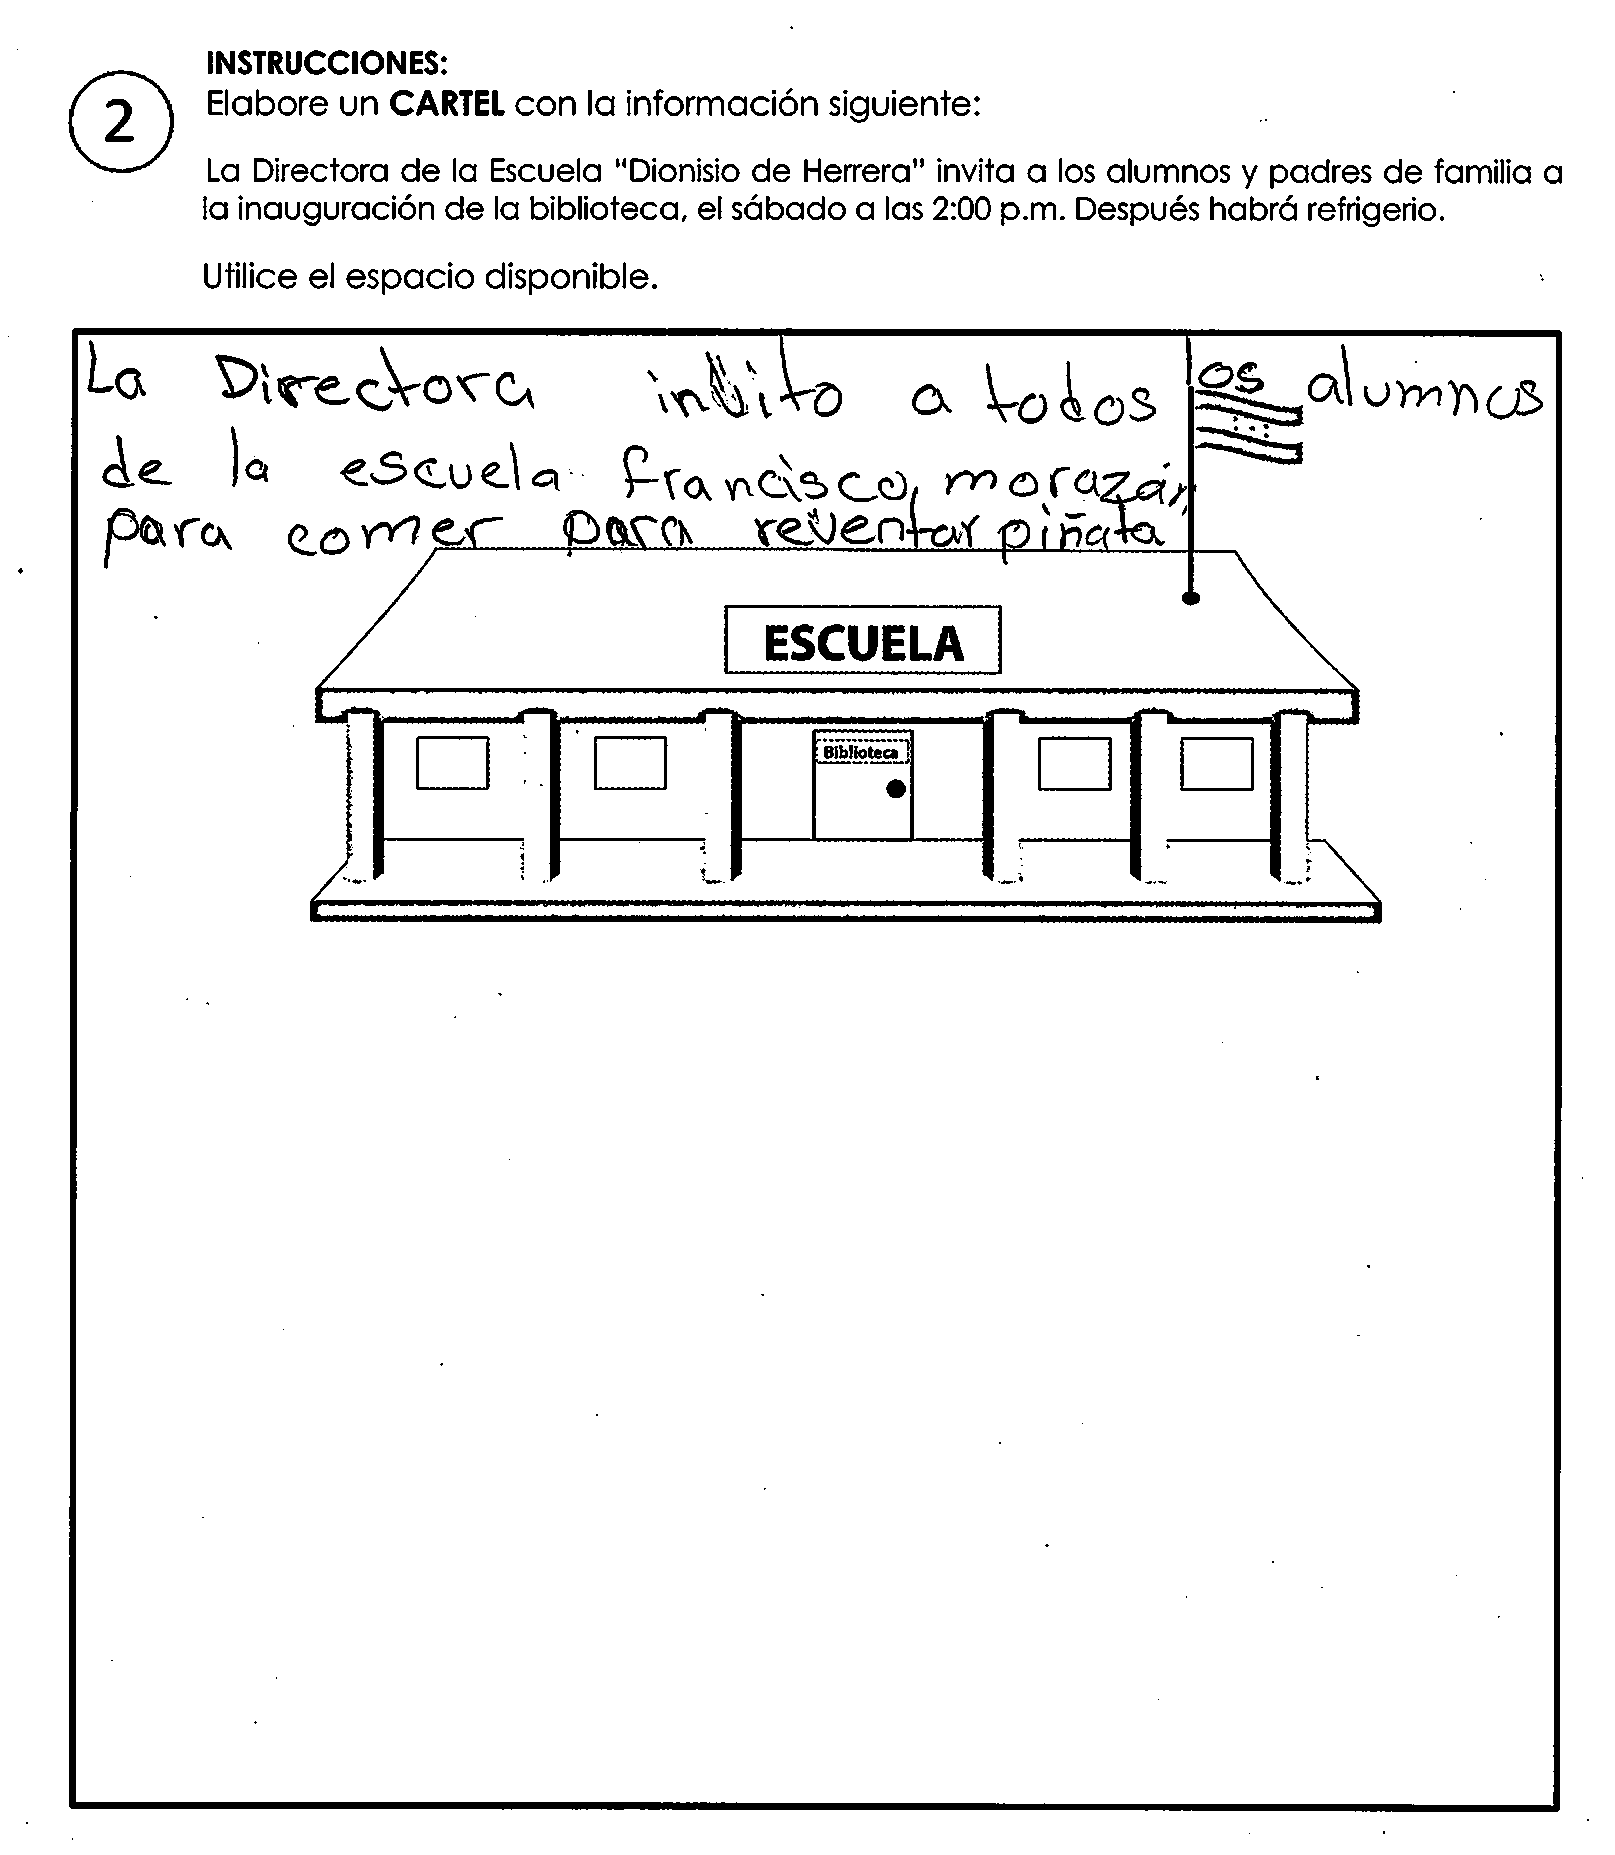 INSTRUCCIONES:
2
Elabore un CARTEL con la información siguiente:
La Directora de la Escuela "Dionisio de Herrera" invita a los alumnos y padres de familia a
la inauguración de la biblioteca, el sábado a las 2:00 p.m. Después habrá refrigerio.
Utilice el espacio disponible.
La Directora invito a todos los alumnos
de la escuela francisco, morazán
para comer para reventar piñata
ESCUELA
Biblioteca